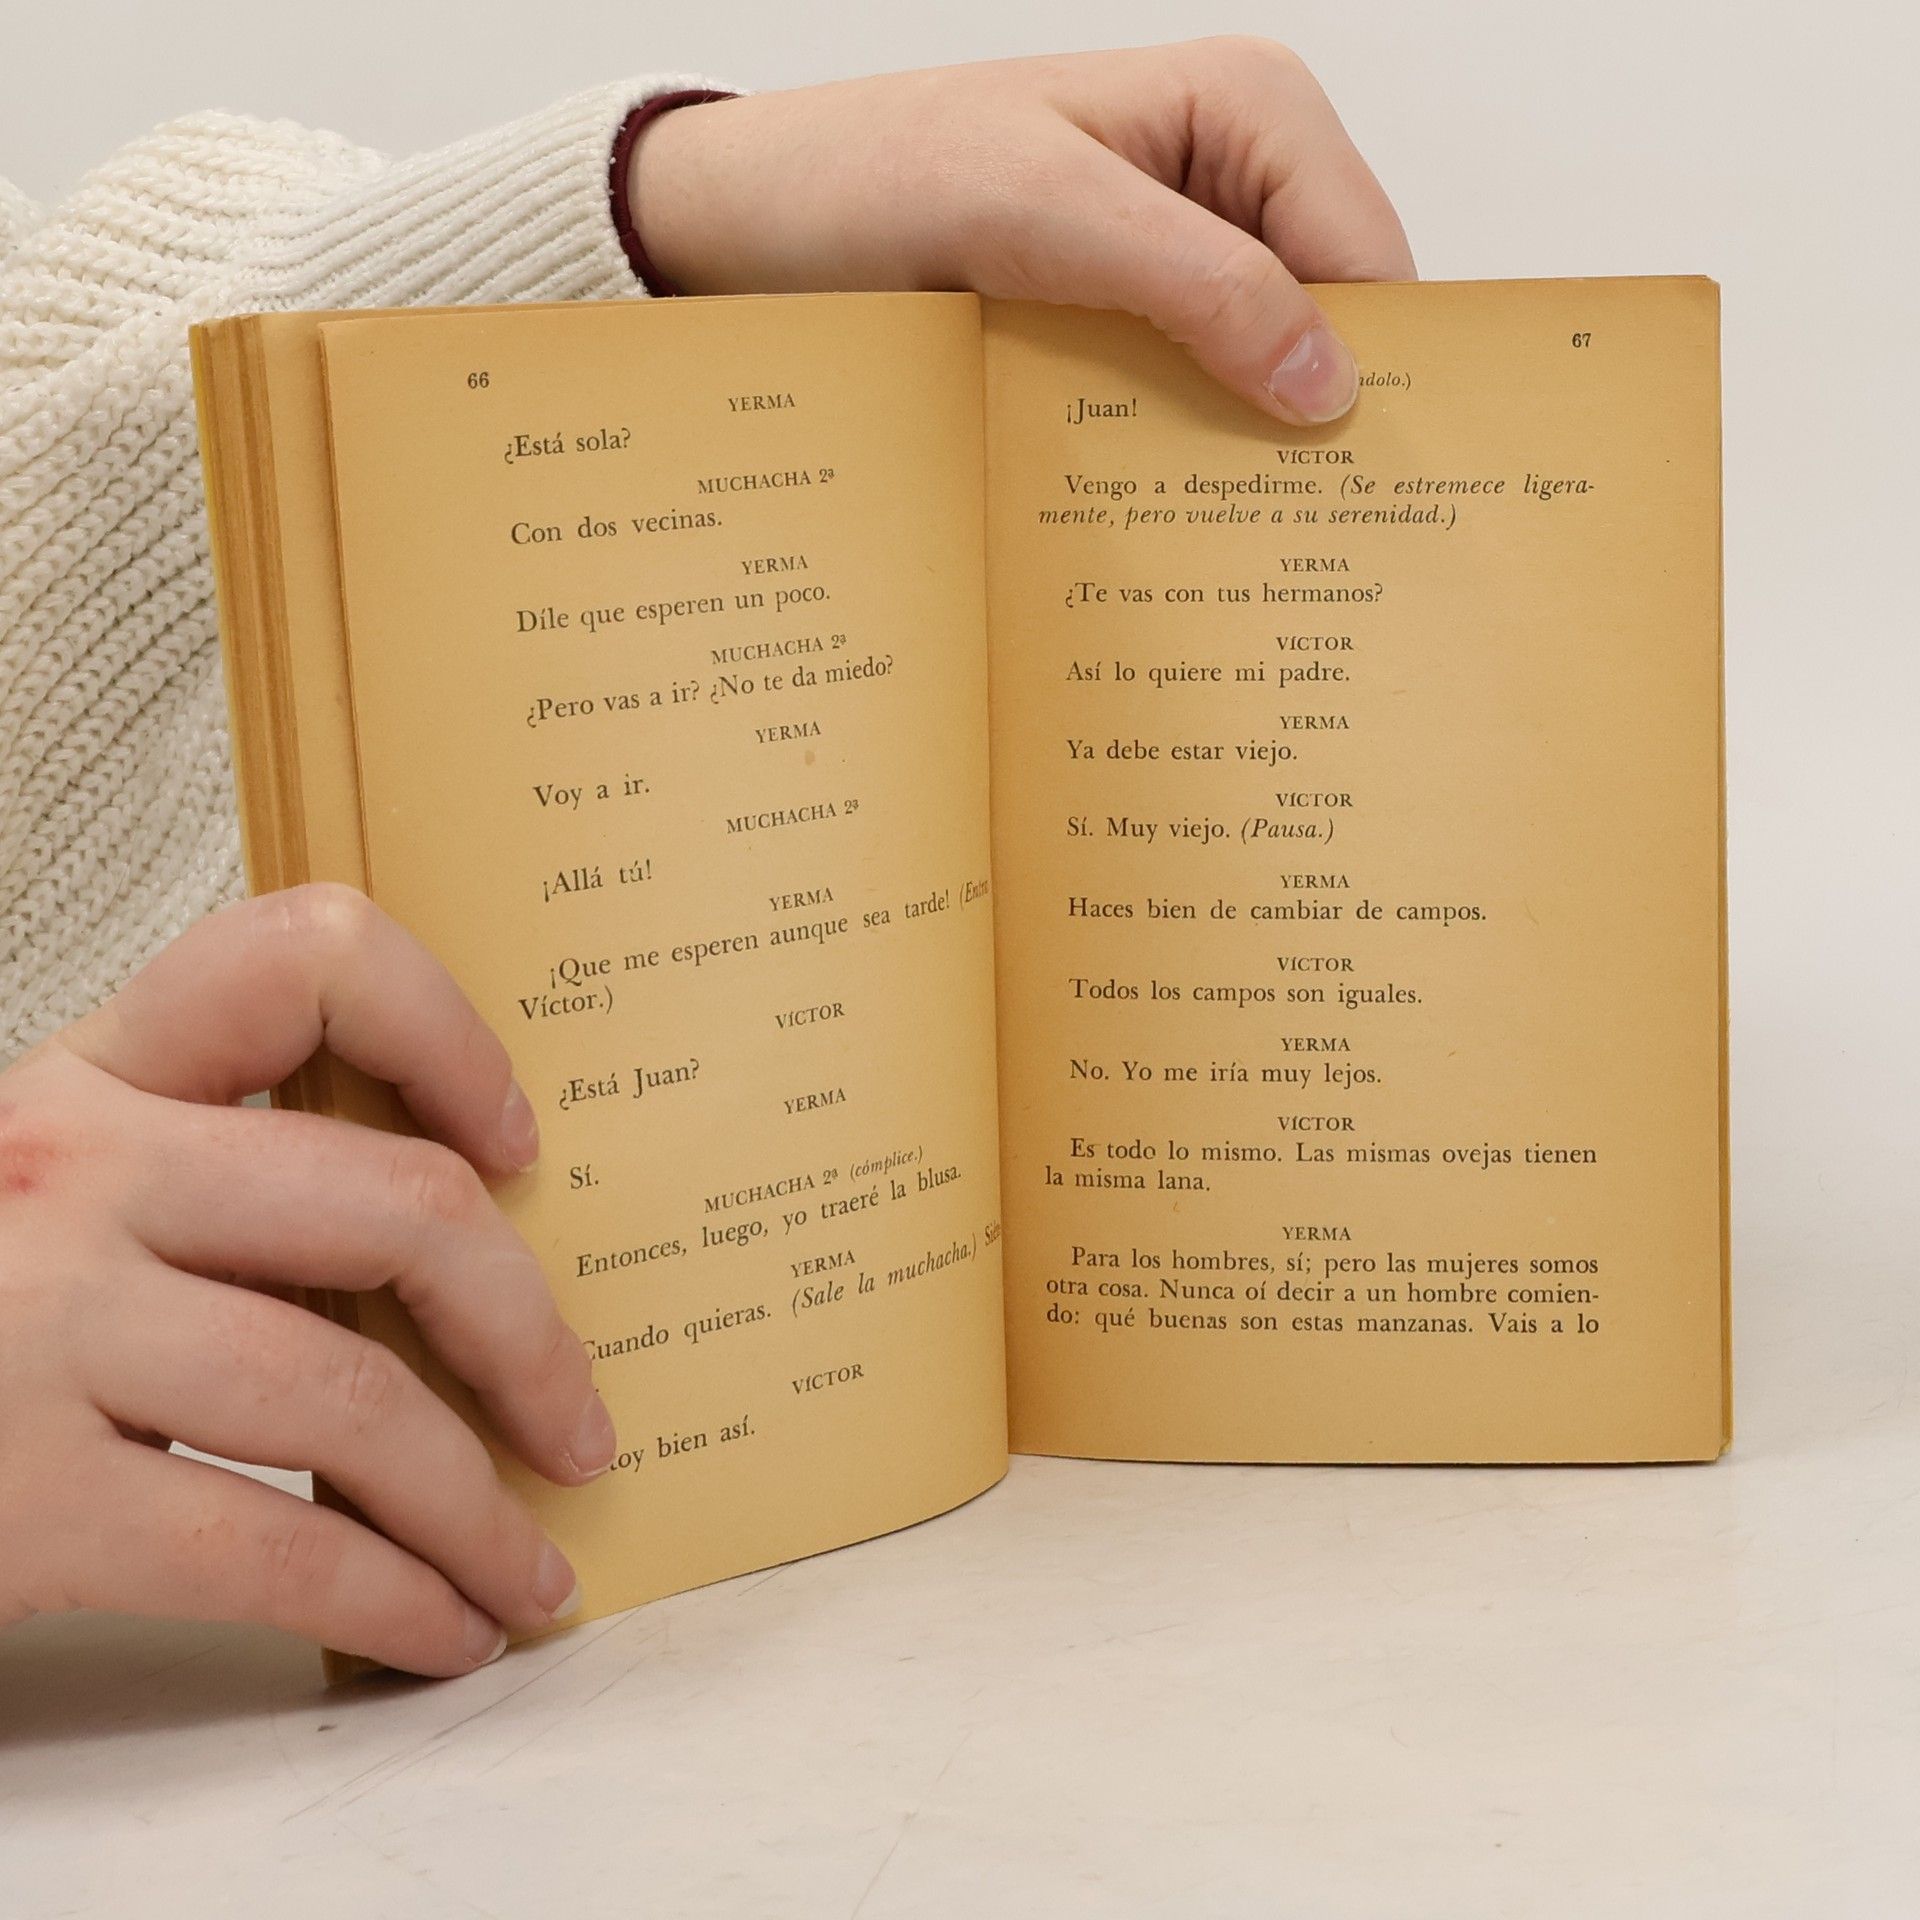 66
YERMA
¿Está sola?
MUCHACHA 2ª
Con dos vecinas.
YERMA
Díle que esperen un poco.
MUCHACHA 2ª
¿Pero vas a ir? ¿No te da miedo?
YERMA
Voy a ir.
MUCHACHA 2ª
¡Allá tú!
YERMA
¡Que me esperen aunque sea tarde! (Entra
Víctor.)
VÍCTOR
¿Está Juan?
YERMA
Sí.
MUCHACHA 2ª (cómplice.)
Entonces, luego, yo traeré la blusa.
YERMA
Cuando quieras. (Sale la muchacha.)
VÍCTOR
bien así.
67
¡Juan!
VÍCTOR
Vengo a despedirme. (Se estremece ligera-
mente, pero vuelve a su serenidad.)
YERMA
¿Te vas con tus hermanos?
VÍCTOR
Así lo quiere mi padre.
YERMA
Ya debe estar viejo.
VÍCTOR
Sí. Muy viejo. (Pausa.)
YERMA
Haces bien de cambiar de campos.
VÍCTOR
Todos los campos son iguales.
YERMA
No. Yo me iría muy lejos.
VÍCTOR
Es todo lo mismo. Las mismas ovejas tienen
la misma lana.
YERMA
Para los hombres, sí; pero las mujeres somos
otra cosa. Nunca oí decir a un hombre comien-
do: qué buenas son estas manzanas. Vais a lo